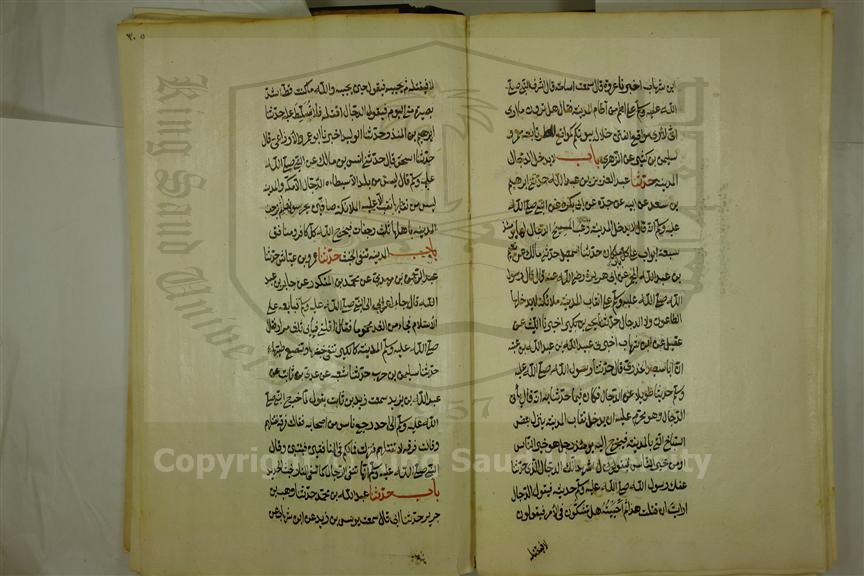 ابن شهاب اخبرنا عروة قال سمعت اسامة قال اشرف النبي صلى
الله عليه وسلم على اطم من آطام المدينة فقال هل ترون ما ارى
اني لارى مواقع الفتن خلال بيوتكم كمواقع القطر تابعه معمر و
سليمن بن كثير عن الزهري باب لا يدخل الدجال
المدينة حدثنا عبد العزيز بن عبد الله حدثني ابرهيم
بن سعد عن ابيه عن جده عن ابي بكرة عن النبي صلى الله
عليه وسلم قال لا يدخل المدينة رعب المسيح الدجال لها يومئذ
سبعة ابواب على كل باب ملكان حدثنا اسمعيل حدثني مالك عن نعيم
بن عبد الله المجمر عن ابي هريرة رضي الله عنه قال قال رسول
الله صلى الله عليه وسلم على انقاب المدينة ملائكة لا يدخلها
الطاعون ولا الدجال حدثنا يحيى بن بكير اخبرنا الليث عن
عقيل عن ابن شهاب اخبرني عبيد الله بن عبد الله بن عتبة
ان ابا سعيد الخدري قال حدثنا رسول الله صلى الله عليه
وسلم حديثا طويلا عن الدجال فكان فيما حدثنا به ان قال ياتي
الدجال وهو محرم عليه ان يدخل نقاب المدينة ينزل بعض
السباخ التي بالمدينة فيخرج اليه يومئذ رجل هو خير الناس
او من خير الناس فيقول اشهد انك الدجال الذي حدثنا
عنك رسول الله صلى الله عليه وسلم حديثه فيقول الدجال
ارايت ان قتلت هذا ثم احييته هل تشكون في الامر فيقولون
لا فيقتله
لا فيقتله ثم يحييه فيقول حين يحييه والله ما كنت قط اشد
بصيرة مني اليوم فيقول الدجال اقتله فلا يسلط عليه حدثنا
ابرهيم بن المنذر حدثنا الوليد اخبرنا ابو عمرو الاوزاعي قال
حدثنا اسحق قال حدثني انس بن مالك عن النبي صلى الله
عليه وسلم قال ليس من بلد الا سيطاه الدجال الا مكة والمدينة
ليس من نقابها نقب الا عليه الملائكة صافين يحرسونها ثم ترجف
المدينة باهلها ثلث رجفات فيخرج الله كل كافر ومنافق
باب المدينة تنفي الخبث حدثنا عمرو بن عباس حدثنا
عبد الرحمن بن مهدي عن محمد بن المنكدر عن جابر بن عبد
الله قال جاء اعرابي الى النبي صلى الله عليه وسلم فبايعه على
الاسلام فجاء من الغد محموما فقال اقلني فابى ثلث مرار فقال
صلى الله عليه وسلم المدينة كالكير تنفي خبثها وتنصع طيبها
حدثنا سليمن بن حرب حدثنا شعبه عن عدي بن ثابت عن
عبد الله بن يزيد سمعت زيد بن ثابت يقول لما خرج النبي صلى
الله عليه وسلم الى احد رجع ناس من اصحابه فقالت فرقة نقتلهم
وقالت فرقة لا نقتلهم فنزلت فما لكم في المنافقين فئتين وقال
النبي صلى الله عليه وسلم انها تنفي الرجال كما تنفي النار خبث الحديد
باب حدثنا عبد الله بن محمد حدثنا وهب بن
جرير حدثنا ابي قال سمعت يونس بن يزيد عن ابن شهاب عن
King Saud University
1957
Copyright © King Saud University